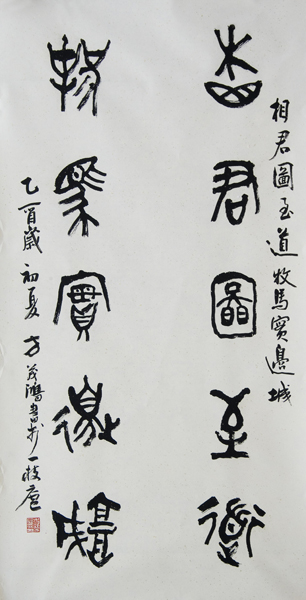 相君圖至道牧馬實邊城
相君圖至道
牧馬實邊城
乙酉歲初夏方茂鴻書於一枝廬